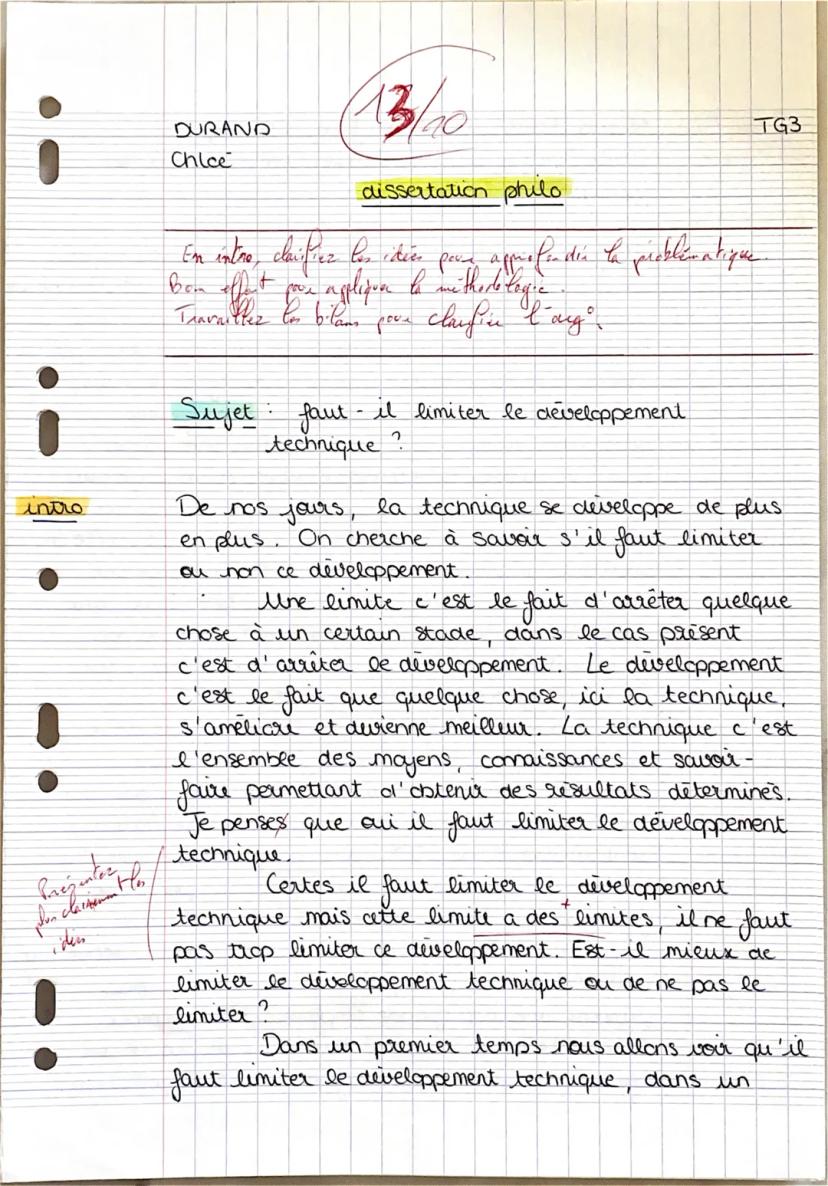 13/20
DURAND
TG3
Chloé
dissertation philo
En intro, clarifiez les idées pour approfondir la problématique.
Bon effort pour appliquer la méthodologie.
Travaillez les bilans pour clarifier l'arg°.
Sujet : faut-il limiter le développement
technique ?
intro
De nos jours, la technique se développe de plus
en plus. On cherche à savoir s'il faut limiter
ou non ce développement.
Une limite c'est le fait d'arrêter quelque
chose à un certain stade, dans le cas présent
c'est d'arrêter le développement. Le développement
c'est le fait que quelque chose, ici la technique,
s'améliore et devienne meilleur. La technique c'est
l'ensemble des moyens, connaissances et savoir-
faire permettant d'obtenir des résultats déterminés.
Je penses que oui il faut limiter le développement
technique.
Certes il faut limiter le développement
technique mais cette limite a des + limites, il ne faut
pas trop limiter ce développement. Est-il mieux de
limiter le développement technique ou de ne pas le
limiter ?
Présentez
plus clairement les
idées
Dans un premier temps nous allons voir qu'il
faut limiter le développement technique, dans un